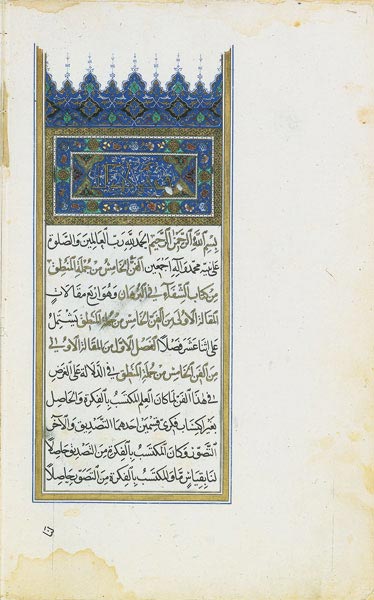 بِسْمِ اللَّهِ الرَّحْمَنِ الرَّحِيمِ الحمد لله رب العالمين والصلوة
على نبيه محمد وآله اجمعين الفن الخامس من جملة المنطق
من كتاب الشفاء في البرهان وهو اربع مقالات
المقالة الاولى من الفن الخامس من جملة المنطق تشتمل
على اثنا عشر فصلا الفصل الاول من المقالة الاولى
من الفن الخامس من جملة المنطق في الدلالة على الغرض
في هذا الفن لما كان العلم المكتسب بالفكرة والحاصل
بغير اكتساب فكري قسمين احدهما التصديق والآخر
التصور وكان المكتسب بالفكرة من التصديق حاصلا
لنا بقياس ما والمكتسب بالفكرة من التصور حاصلا